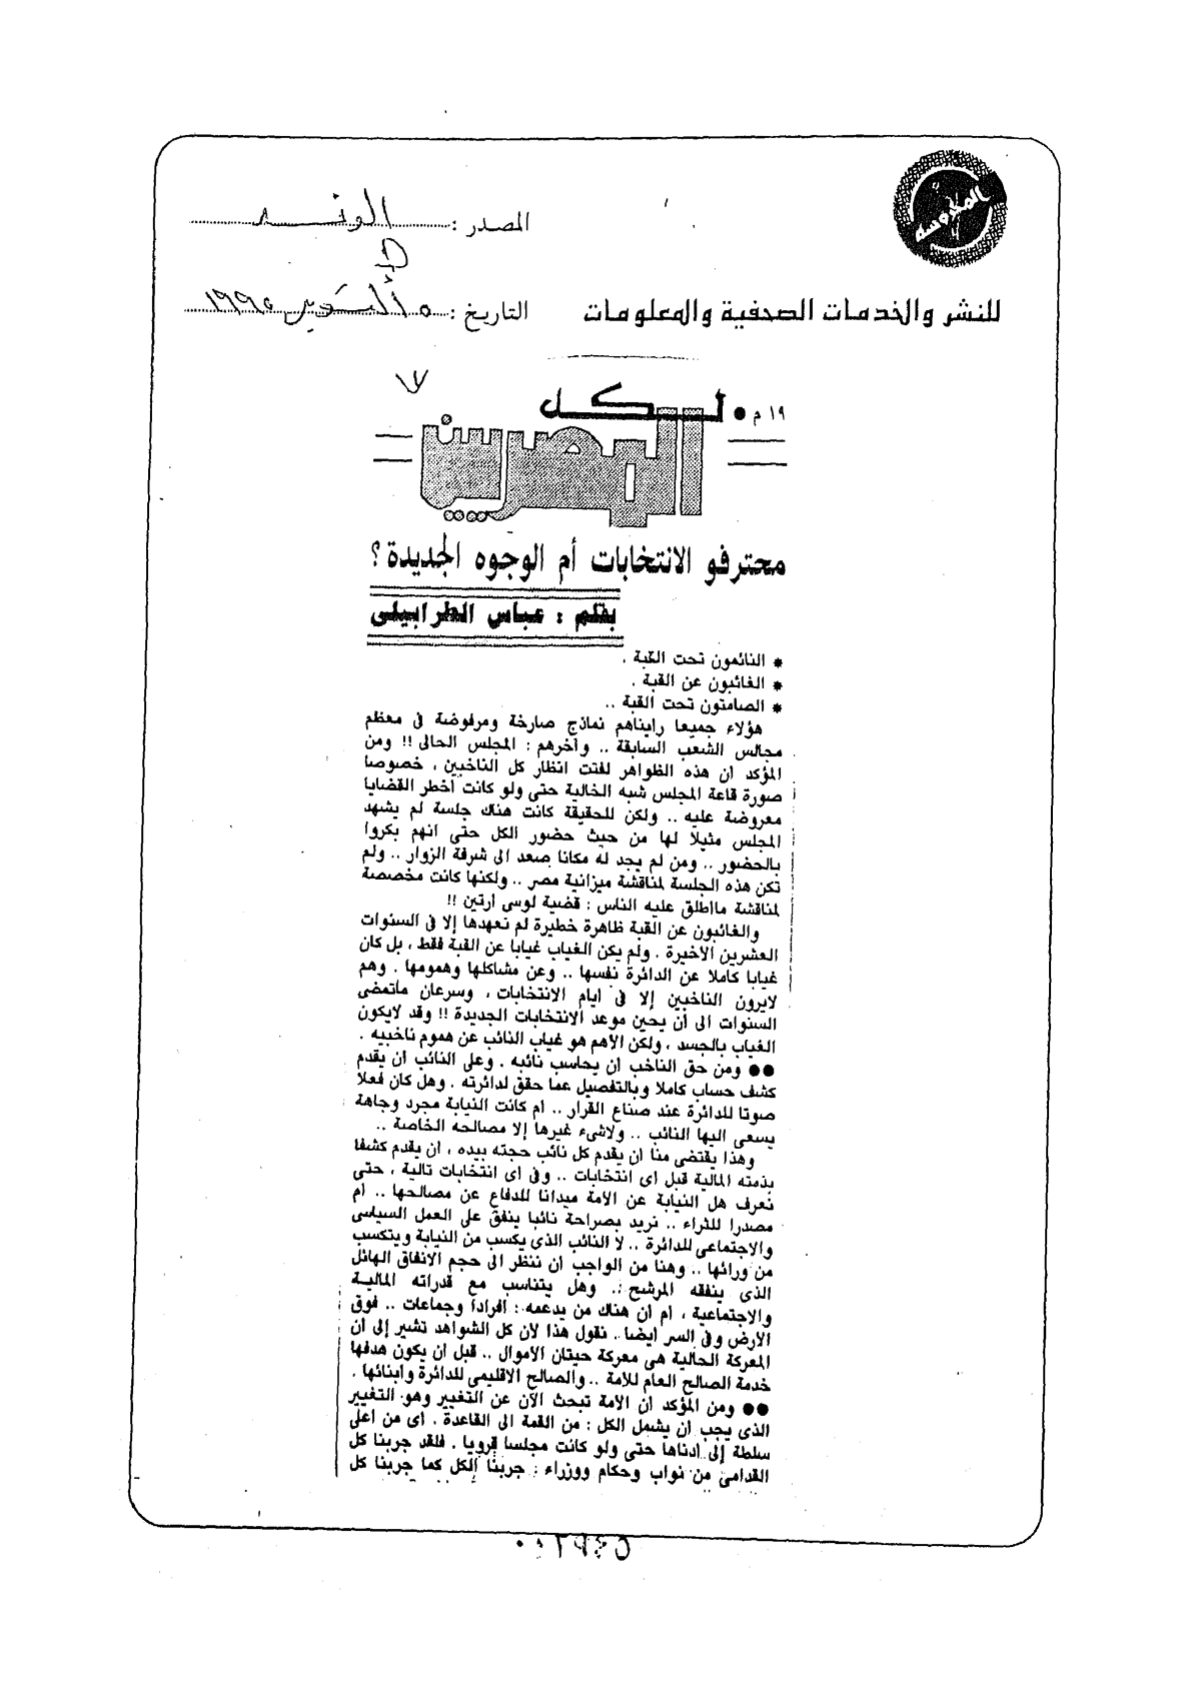 المصدر : الوفد
للنشر والخدمات الصحفية والمعلومات
التاريخ : ٥ أكتوبر ١٩٩٥
١٩ م ● لكل
المصريين
محترفو الانتخابات أم الوجوه الجديدة ؟
بقلم : عباس الطرابيلى
* النائمون تحت القبة .
* الغائبون عن القبة .
* الصامتون تحت القبة ..
هؤلاء جميعا رايناهم نماذج صارخة ومرفوضة فى معظم
مجالس الشعب السابقة .. وآخرهم : المجلس الحالى !! ومن
المؤكد ان هذه الظواهر لفتت انظار كل الناخبين ، خصوصا
صورة قاعة المجلس شبه الخالية حتى ولو كانت أخطر القضايا
معروضة عليه .. ولكن للحقيقة كانت هناك جلسة لم يشهد
المجلس مثيلا لها من حيث حضور الكل حتى انهم بكروا
بالحضور .. ومن لم يجد له مكانا صعد الى شرفة الزوار .. ولم
تكن هذه الجلسة لمناقشة ميزانية مصر .. ولكنها كانت مخصصة
لمناقشة مااطلق عليه الناس : قضية لوسى ارتين !!
والغائبون عن القبة ظاهرة خطيرة لم نعهدها إلا فى السنوات
العشرين الأخيرة . ولم يكن الغياب غيابا عن القبة فقط ، بل كان
غيابا كاملا عن الدائرة نفسها .. وعن مشاكلها وهمومها . وهم
لايرون الناخبين إلا فى ايام الانتخابات ، وسرعان ماتمضى
السنوات الى أن يحين موعد الانتخابات الجديدة !! وقد لايكون
الغياب بالجسد ، ولكن الأهم هو غياب النائب عن هموم ناخبيه .
●● ومن حق الناخب ان يحاسب نائبه . وعلى النائب ان يقدم
كشف حساب كاملا وبالتفصيل عما حقق لدائرته . وهل كان فعلا
صوتا للدائرة عند صناع القرار .. ام كانت النيابة مجرد وجاهة
يسعى اليها النائب .. ولاشىء غيرها إلا مصالحه الخاصة ..
وهذا يقتضى منا ان يقدم كل نائب حجته بيده ، ان يقدم كشفا
بذمته المالية قبل اى انتخابات .. وفى اى انتخابات تالية ، حتى
نعرف هل النيابة عن الأمة ميدانا للدفاع عن مصالحها .. أم
مصدرا للثراء .. نريد بصراحة نائبا ينفق على العمل السياسى
والاجتماعى للدائرة .. لا النائب الذى يكسب من النيابة ويتكسب
من ورائها .. وهنا من الواجب ان ننظر الى حجم الانفاق الهائل
الذى ينفقه المرشح .. وهل يتناسب مع قدراته المالية
والاجتماعية ، ام ان هناك من يدعمه : افرادا وجماعات .. فوق
الأرض وفى السر ايضا . نقول هذا لان كل الشواهد تشير إلى ان
المعركة الحالية هى معركة حيتان الأموال .. قبل ان يكون هدفها
خدمة الصالح العام للأمة .. والصالح الاقليمى للدائرة وابنائها .
●● ومن المؤكد ان الأمة تبحث الآن عن التغيير وهو التغيير
الذى يجب ان يشمل الكل : من القمة الى القاعدة . اى من اعلى
سلطة إلى ادناها حتى ولو كانت مجلسا قرويا . فلقد جربنا كل
القدامى من نواب وحكام ووزراء : جربنا الكل كما جربنا كل